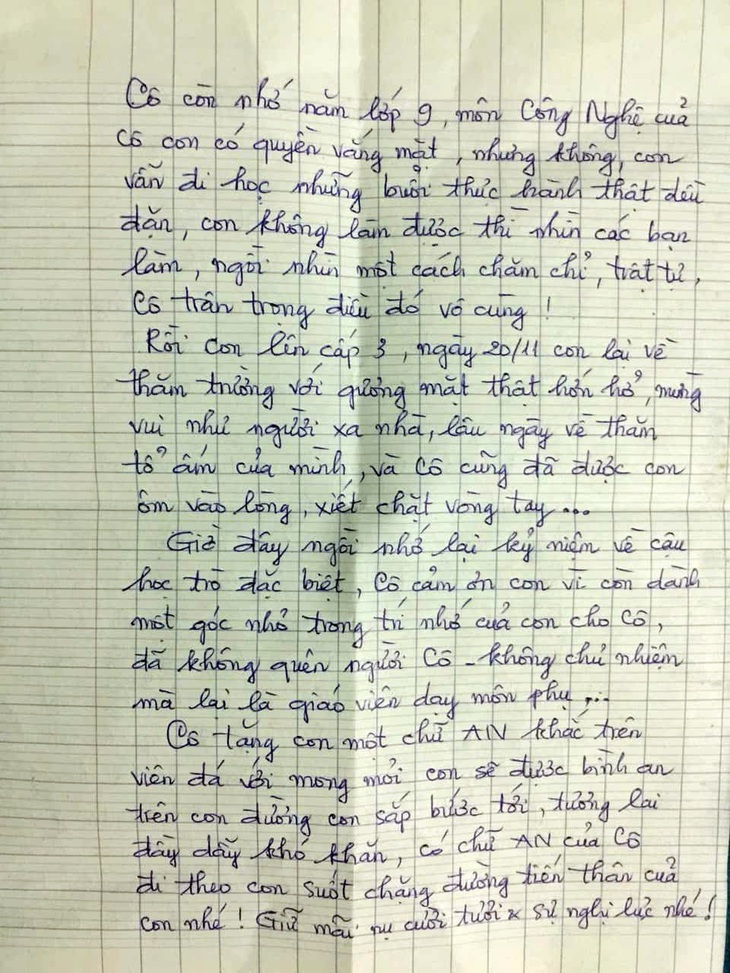 Cô còn nhớ năm lớp 9, môn Công Nghệ của
cô con có quyền vắng mặt, nhưng không, con
vẫn đi học những buổi thực hành thật đều
đặn, con không làm được thì nhìn các bạn
làm, ngồi nhìn một cách chăm chỉ, trật tự,
Cô trân trọng điều đó vô cùng!
Rồi con lên cấp 3, ngày 20/11 con lại về
thăm trường với gương mặt thật hớn hở, mừng
vui như người xa nhà, lâu ngày về thăm
tổ ấm của mình, và Cô cũng đã được con
ôm vào lòng, xiết chặt vòng tay...
Giờ đây ngồi nhớ lại kỷ niệm về cậu
học trò đặc biệt, Cô cảm ơn con vì còn dành
một góc nhỏ trong trí nhớ của con cho Cô,
đã không quên người Cô - không chủ nhiệm
mà lại là giáo viên dạy môn phụ...
Cô tặng con một chữ AN khắc trên
viên đá với mong mỏi con sẽ được bình an
trên con đường con sắp bước tới, tương lai
đầy dẫy khó khăn, có chữ AN của Cô
đi theo con suốt chặng đường tiến thân của
con nhé! Giữ mãi nụ cười tươi & sự nghị lực nhé!